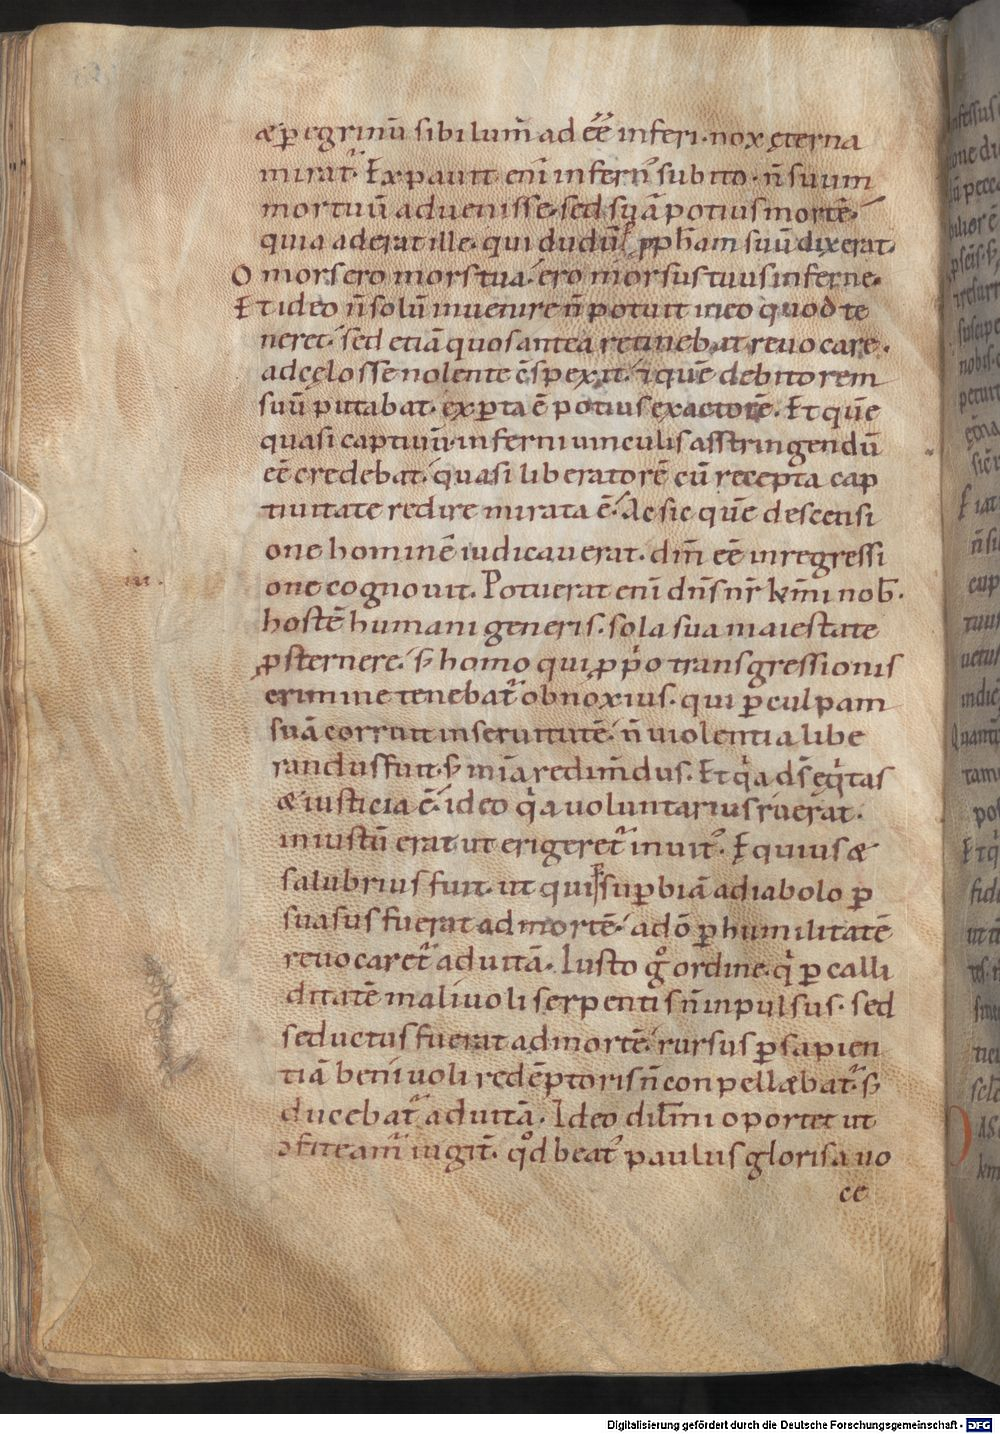 & ꝑegrinũ sibi lum̃ ad ee̅e̅ inferi. nox ęterna
miratˀ. Expauit eni̅ infern̅ subito. n̅ suum
mortuũ aduenisse. sed suã potius mortẽ.
quia aderat ille. qui dudũ ꝓ ꝓph̅am suũ dixerat.
O mors ero mors tua. ero morsus tuus inferne.
Et ideo n̅ solũ inuenire n̅ potuit in eo quod te
neret. sed etiã quos antea retinebat reuocare.
ad cęlos se nolente c̅spexit. & quẽ debitorem
suũ putabat. exꝑta ẽ potius exactorẽ. Et quẽ
quasi captiuũ. inferni uinculis asstringendũ
ee̅ credebat. quasi liberatorẽ cũ recepta cap
tiuitate redire mirata ẽ. Ac sic quẽ descensi
one hominẽ iudicauerat. dñm ee̅ in regressi
one cognouit. Potuerat eni̅ dn̅s nr̅ km̅i nob̅.
hostẽ humani generis. sola sua maiestate
ꝓsternere. s; homo qui ꝓ ṗo transgressionis
crimine tenebatˀ obnoxius. qui ꝑ culpam
suã corruit in seruitutẽ. n̅ uiolentia libe
randus fuit. s; mĩa redim̅dus. Et qa ds̅ eq̇tas
& iusticia ẽ. ideo qa uoluntarius ruerat.
iniustũ erat ut erigeretˀ inuitˀ. Equius &
salubrius fuit. ut qui suꝑbiã a diabolo ꝑ
suasus fuerat ad mortẽ. a dõ ꝑ humilitatẽ
reuocaretˀ ad uitã. Iusto g̊ ordine. q̇ ꝑ calli
ditatẽ maliuoli serpentis n̅ inpulsus. sed
seductus fuerat ad mortẽ. rursus ꝑ sapien
tiã beniuoli redẽptoris n̅ conpellæbatˀ. s;
ducebatˀ ad uitã. Ideo dil̅mi oportet ut
ꝓfiteamˀ iugit̅. qd beatˀ paulus gloris a uo
ce
.iii.
Digitalisierung gefördert durch die Deutsche Forschungsgemeinschaft - DFG